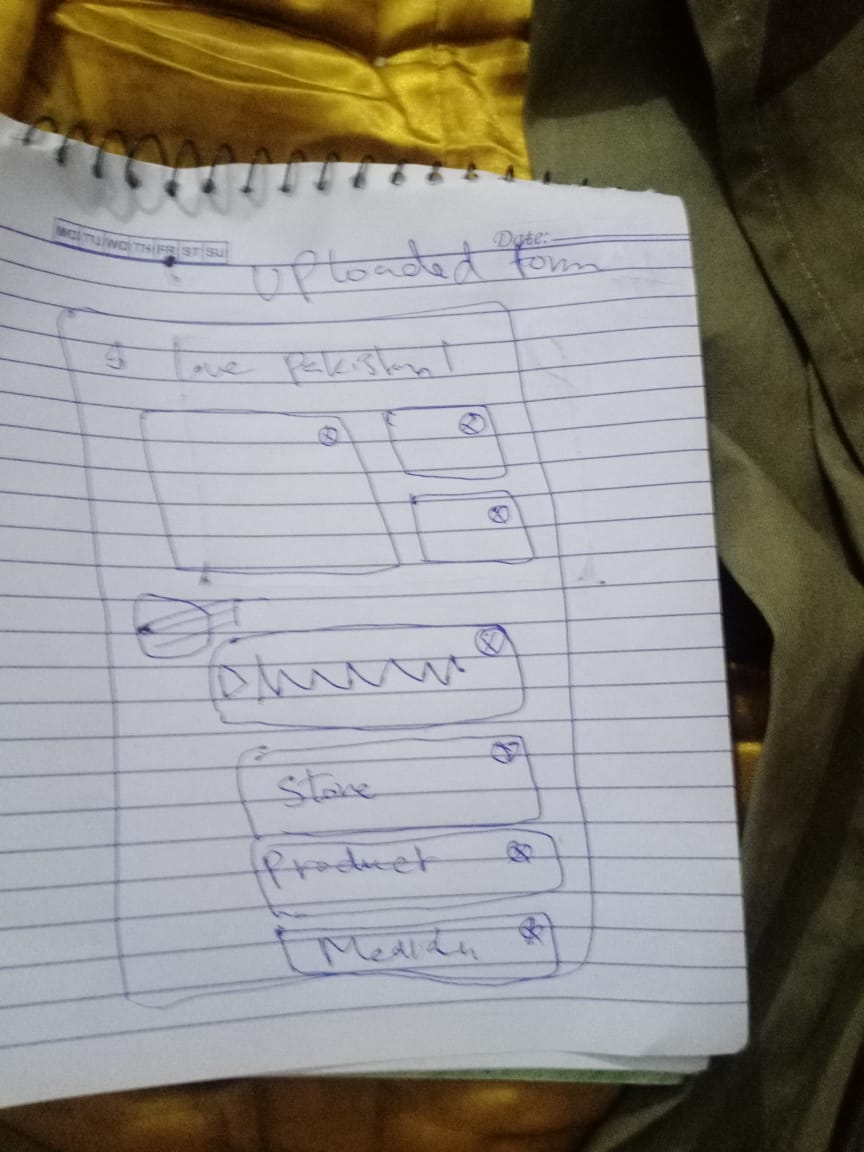 MO TU WC TH FR ST SU
Date:
Uploaded form
I love Pakistan!
Store
Product